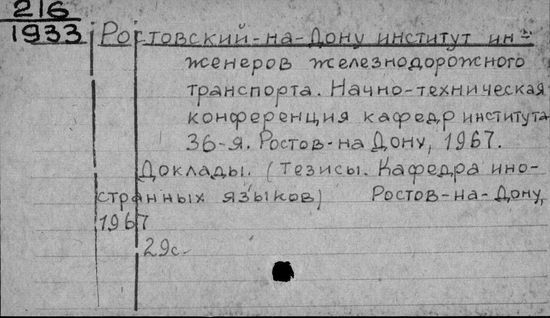 216
1933
Ростовский-на-Дону институт ин-
женеров железнодорожного
транспорта. Начно-техническая
конференция кафедр института
36-я. Ростов-на Дону, 1967.
Доклады. (Тезисы. Кафедра ино-
странных языков) Ростов-на-Дону,
1967
29с.